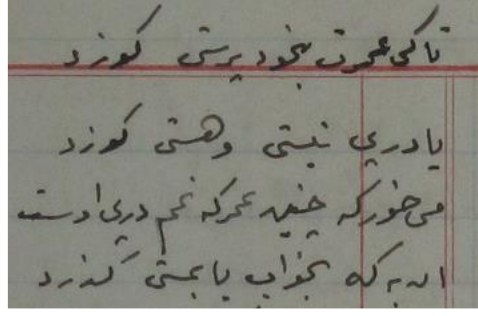 تا کی عمرت بخود پرستی گذرد
یا در پی نیستی و هستی گذرد
می خور که چنین عمر که غم در پی اوست
آن به که بخواب یا بمستی گذرد